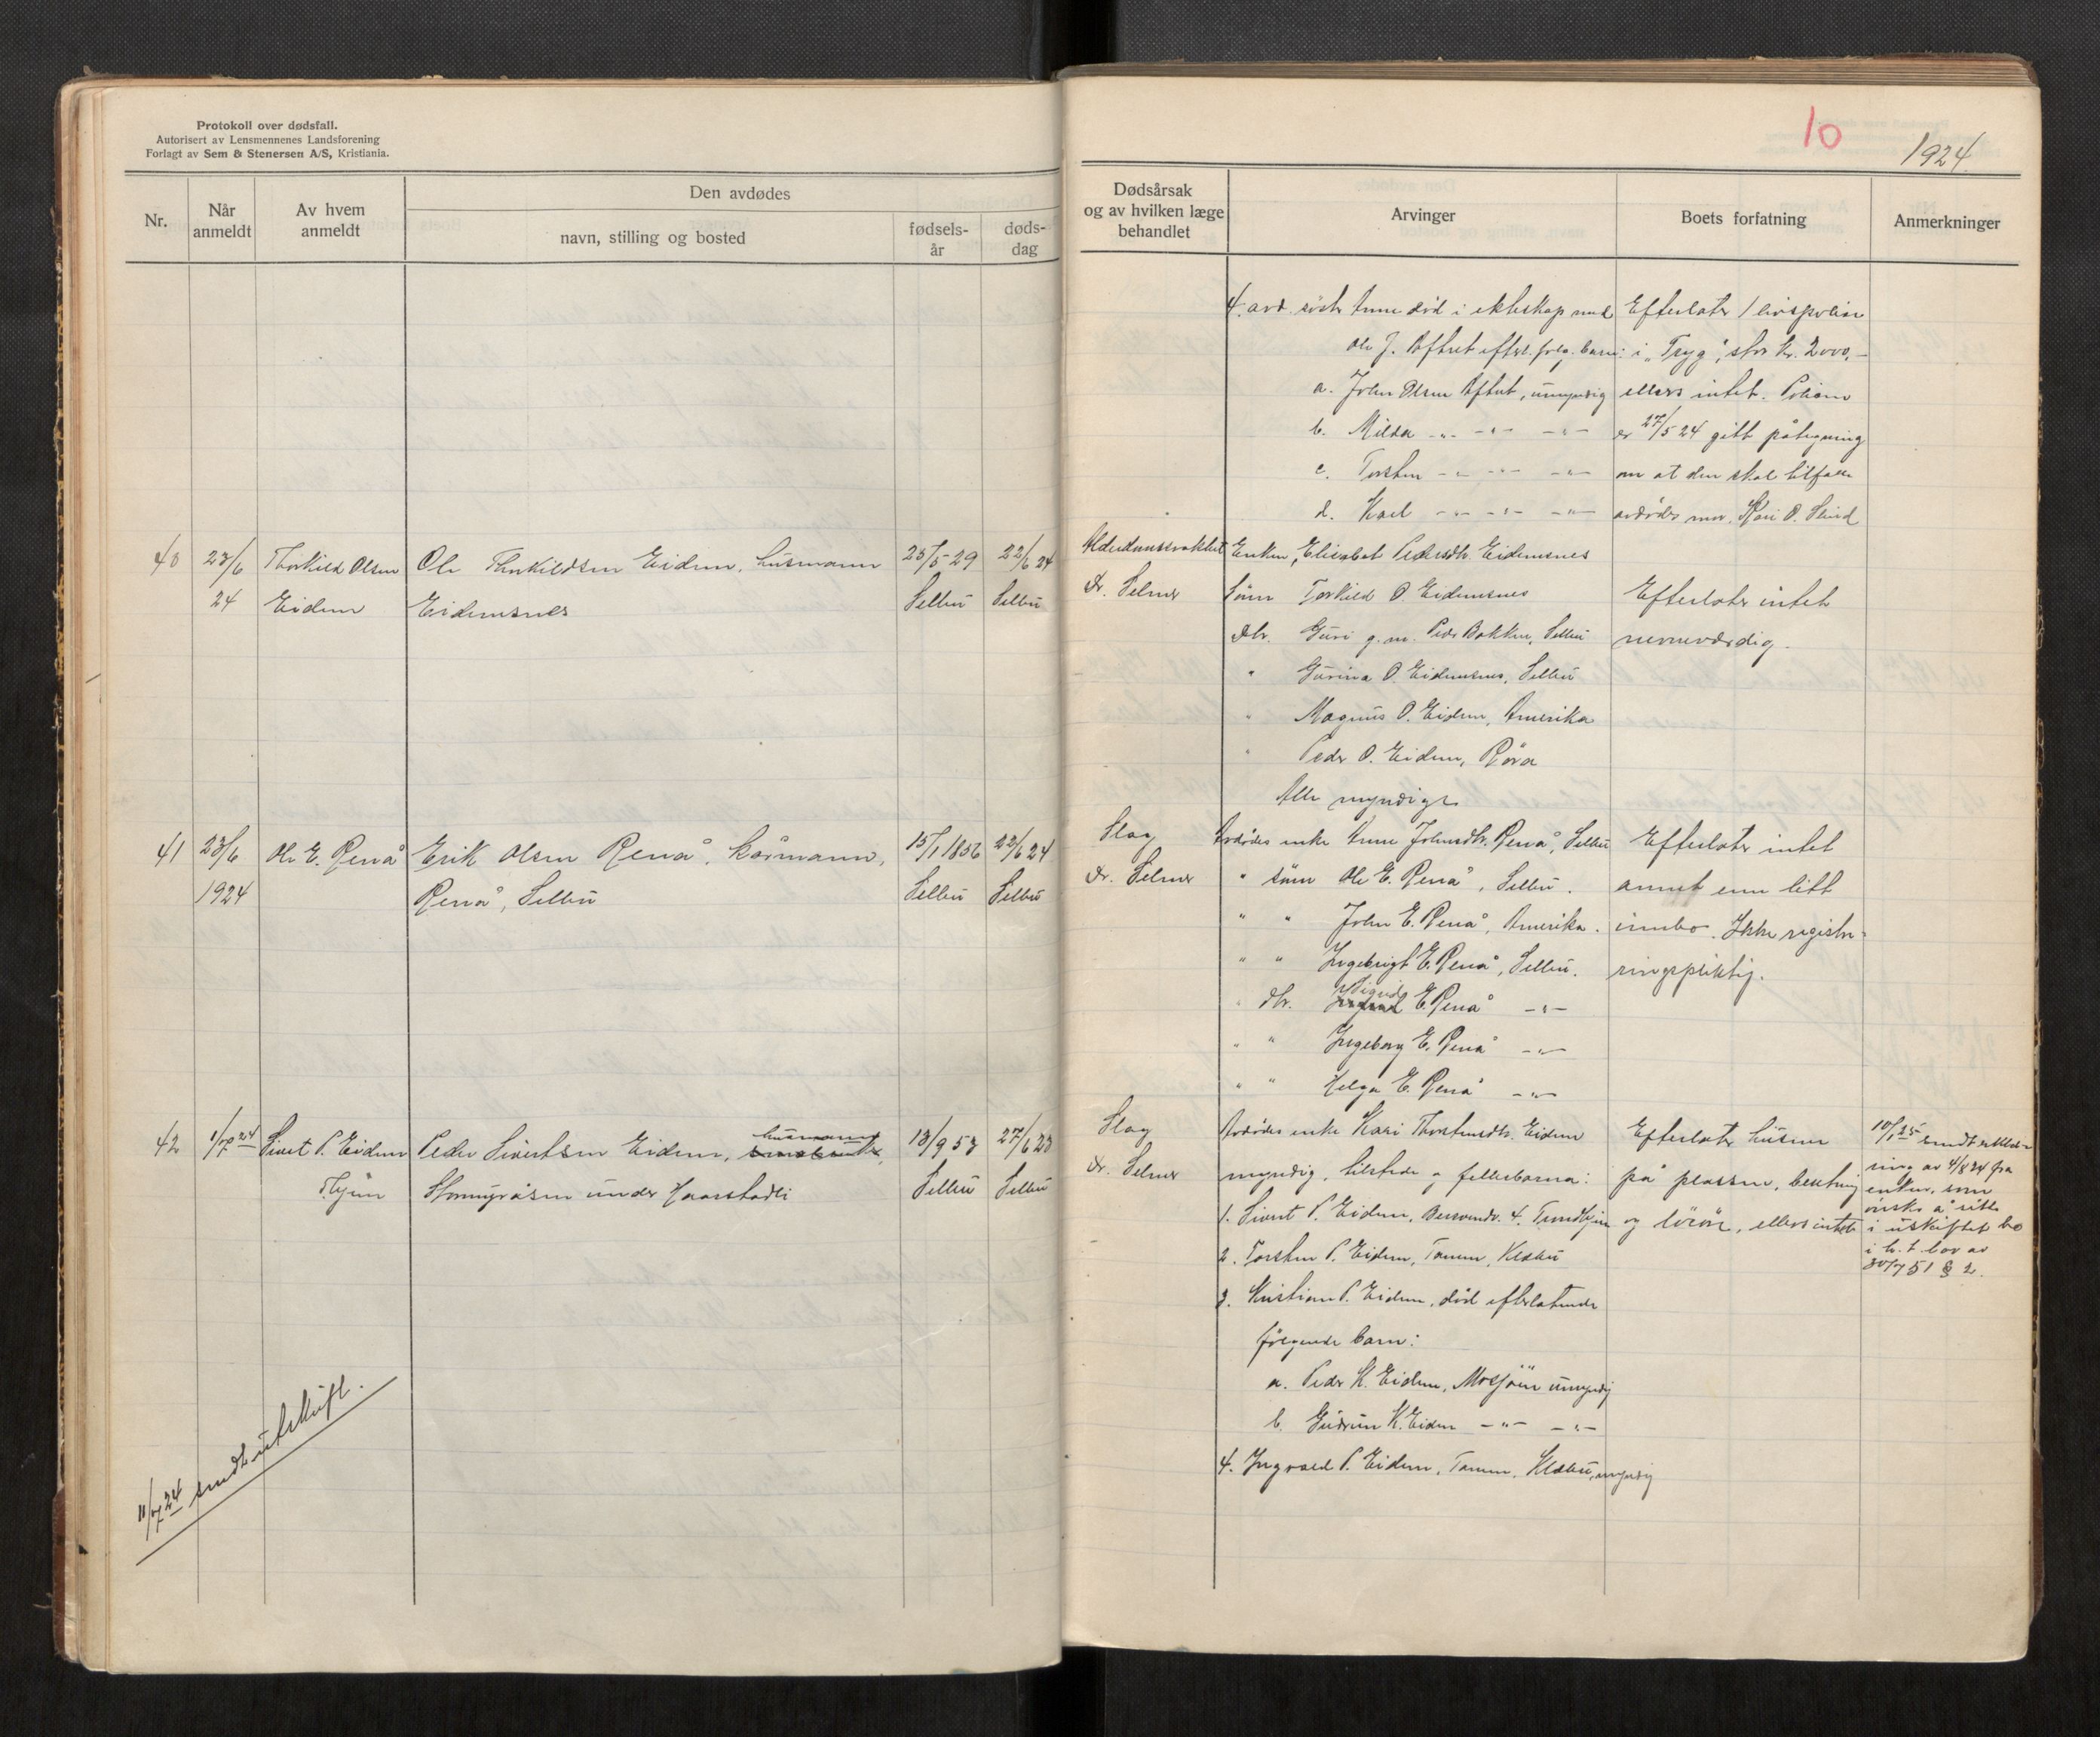 Protokoll over dødsfall.
Autorisert av Lensmennenes Landsforening
Forlagt av Sem & Stenersen A/S, Kristiania.
Nr.
Når anmeldt
Av hvem anmeldt
Den avdødes
navn, stilling og bosted
fødsels-
år
døds-
dag
40 23/6 Thorkild Olsen Ole Thorkildsen Eidem, husmann 25/5-29 22/6 24
24 Eidem Eidemsnes Selbu Selbu
41 23/6 Ole E. Renå Erik Olsen Renå, kårmann, 15/1 1856 22/6 24
1924 Renå, Selbu Selbu Selbu
42 1/7 24 Sivert P. Eidem Peder Sivertsen Eidem, husmann 13/9 53 27/6 23
Thjem under Haarstadli Selbu Selbu
11/7 24 sendt utskrift.
10
1924.
Dødsårsak
og av hvilken læge
behandlet
Arvinger
Boets forfatning
Anmerkninger
4. avd. søster Anne død i ekteskap med Efterlater 1 livspolise
Ole J. Aftret efterl. følg. barn: i "Tryg", stor kr. 2000,-
a. John Olsen Aftret, umyndig ellers intet. Polisen
b. Milda -"- -"- -"- er 27/5 24 gitt påtegning
c. Torsten -"- -"- -"- om at den skal tilfalle
d. Karl -"- -"- -"- avdødes mor, Kari O. Slind
Alderdomssvakhet Enken, Elisabet Pedersdtr. Eidemsnes
Dr. Selmer Sønn Torkild O. Eidemsnes Efterlater intet
dtr. Guri g.m. Peder Bakken, Selbu nevneværdig.
" Gurina O. Eidemsnes, Selbu
" Magnus O. Eidem, Amerika
" Peder O. Eidem, Røra
Alle myndige
Slag Avdødes enke Anne Johnsdtr. Renå, Selbu Efterlater intet
Dr. Selmer " sønn Ole E. Renå, Selbu. annet enn litt
" " John E. Renå, Amerika. innbo. Ikke registre-
" " Ingebrigt E. Renå, Selbu. ringspliktig.
" dtr. Sigrid E. Renå -"-
" " Ingeborg E. Renå -"-
" " Helga E. Renå -"-
Slag Avdødes enke Kari Thorstensdtr. Eidem Efterlater husene 10/1 25 sendt erklæ-
Dr. Selmer myndig, tilstede og fellesbarna: på plassen, besetning ring av 4/8 24 fra
enken, som
1. Sivert P. Eidem, 4, Trondhjem og løsøre, ellers intet ønsker å sitte
i uskiftet bo
2. Torsten P. Eidem, Tanem, Klæbu i h. t. lov av
30/7 51 § 2.
3. Kristian P. Eidem, død efterlatende
følgende barn:
a. Peder K. Eidem, Mosjøen umyndig
b. Gudrun K. Eidem -"- -"-
4. Ingvald P. Eidem, Tanem, Klæbu, myndig